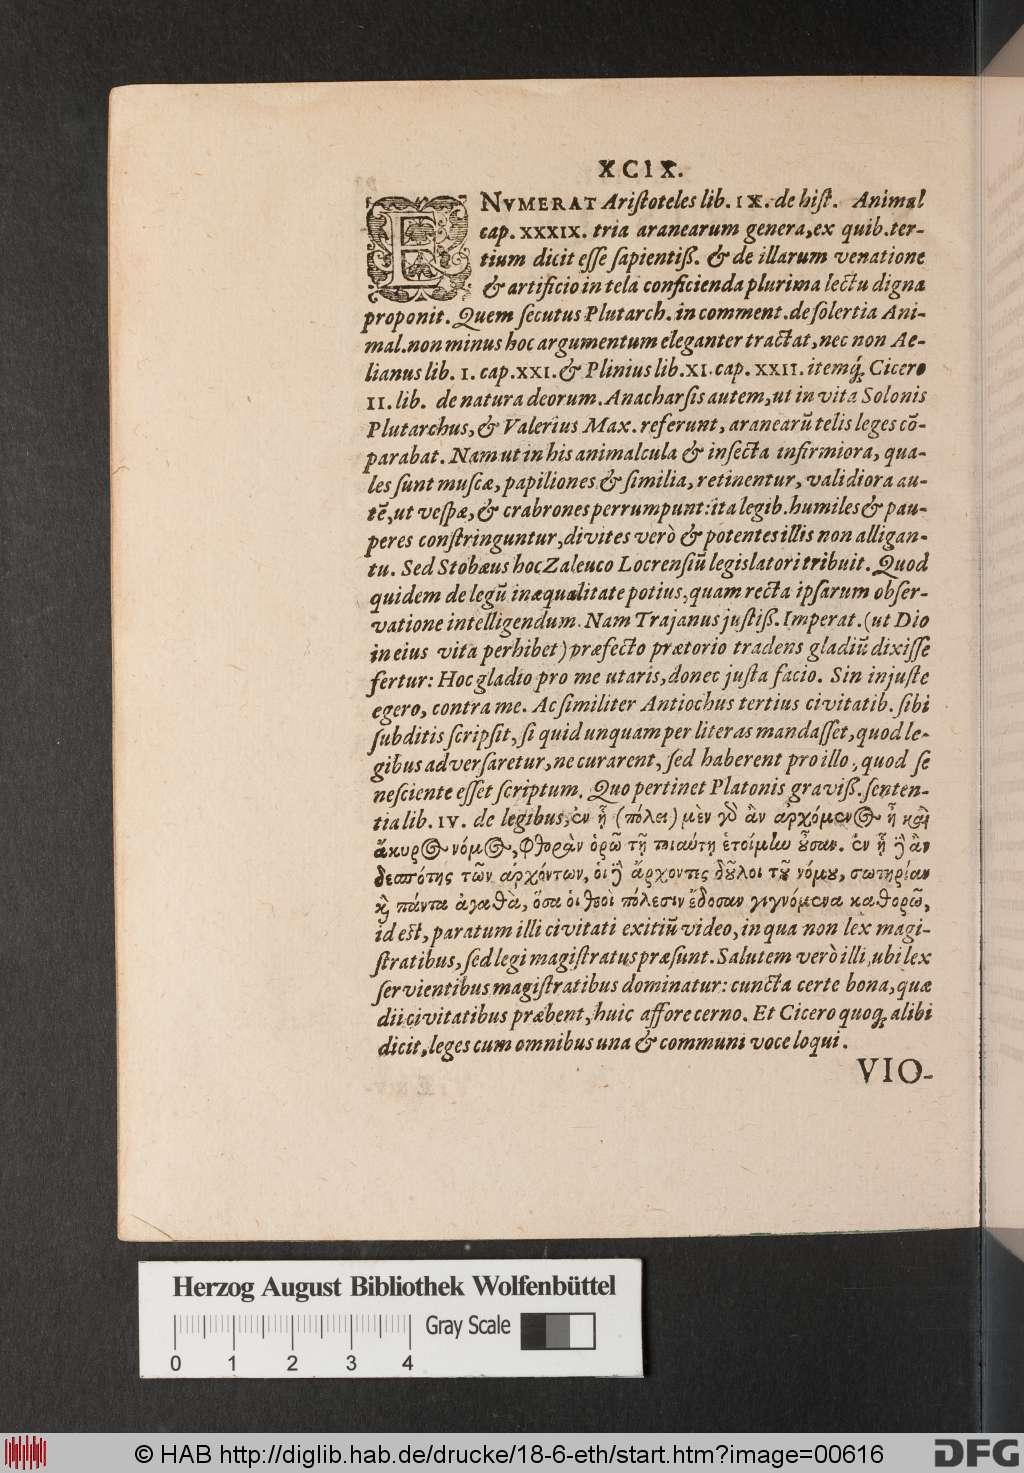 XCIX.
ENVMERAT Aristoteles lib. IX. de hist. Animal
cap. XXXIX. tria aranearum genera, ex quib. ter-
tium dicit esse sapientiß. & de illarum venatione
& artificio in tela conficienda plurima lectu digna
proponit. Quem secutus Plutarch. in comment. de solertia Ani-
mal. non minus hoc argumentum eleganter tractat, nec non Ae-
lianus lib. I. cap. XXI. & Plinius lib. XI. cap. XXII. itemq́; Cicero
II. lib. de natura deorum. Anacharsis autem, ut in vita Solonis
Plutarchus, & Valerius Max. referunt, aranearũ telis leges cõ-
parabat. Nam ut in his animalcula & insecta infirmiora, qua-
les sunt muscæ, papiliones & similia, retinentur, validiora au-
tẽ, ut vespæ, & crabrones perrumpunt: ita legib. humiles & pau-
peres constringuntur, divites verò & potentes illis non alligan-
tu. Sed Stobæus hoc Zaleuco Locrensiũ legislatori tribuit. Quod
quidem de legũ inæqualitate potius, quam recta ipsarum obser-
vatione intelligendum. Nam Trajanus justiß. Imperat. (ut Dio
in eius vita perhibet) præfecto prætorio tradens gladiũ dixisse
fertur: Hoc gladio pro me utaris, donec justa facio. Sin injuste
egero, contra me. Ac similiter Antiochus tertius civitatib. sibi
subditis scripsit, si quid unquam per literas mandasset, quod le-
gibus adversaretur, ne curarent, sed haberent pro illo, quod se
nesciente esset scriptum. Quo pertinet Platonis graviß. senten-
tia lib. IV. de legibus, ἐν ᾗ (πόλει) μὲν γὸ ἂν ἀρχόμενος ᾖ καὶ
ἄκυρος νόμος, φθορὰν ὁρῶ τῇ τοιαύτῃ ἑτοίμlω οὖσαν. ἐν ᾗ ἢ ἂν
δεσπότης τῶν ἀρχόντων, οἱ ἢ ἄρχοντες δοῦλοι τοῦ νόμου, σωτηρίαν
κὶ πάντα ἀγαθὰ, ὅσα οἱ θεοὶ πόλεσιν ἔδοσαν γιγνόμενα καθορῶ,
id est, paratum illi civitati exitiũ video, in qua non lex magi-
stratibus, sed legi magistratus præsunt. Salutem verò illi, ubi lex
servientibus magistratibus dominatur: cuncta certe bona, quæ
dii civitatibus præbent, huic affore cerno. Et Cicero quoq; alibi
dicit, leges cum omnibus una & communi voce loqui.
VIO-
Herzog August Bibliothek Wolfenbüttel
Gray Scale
0 1 2 3 4
© HAB http://diglib.hab.de/drucke/18-6-eth/start.htm?image=00616
DFG